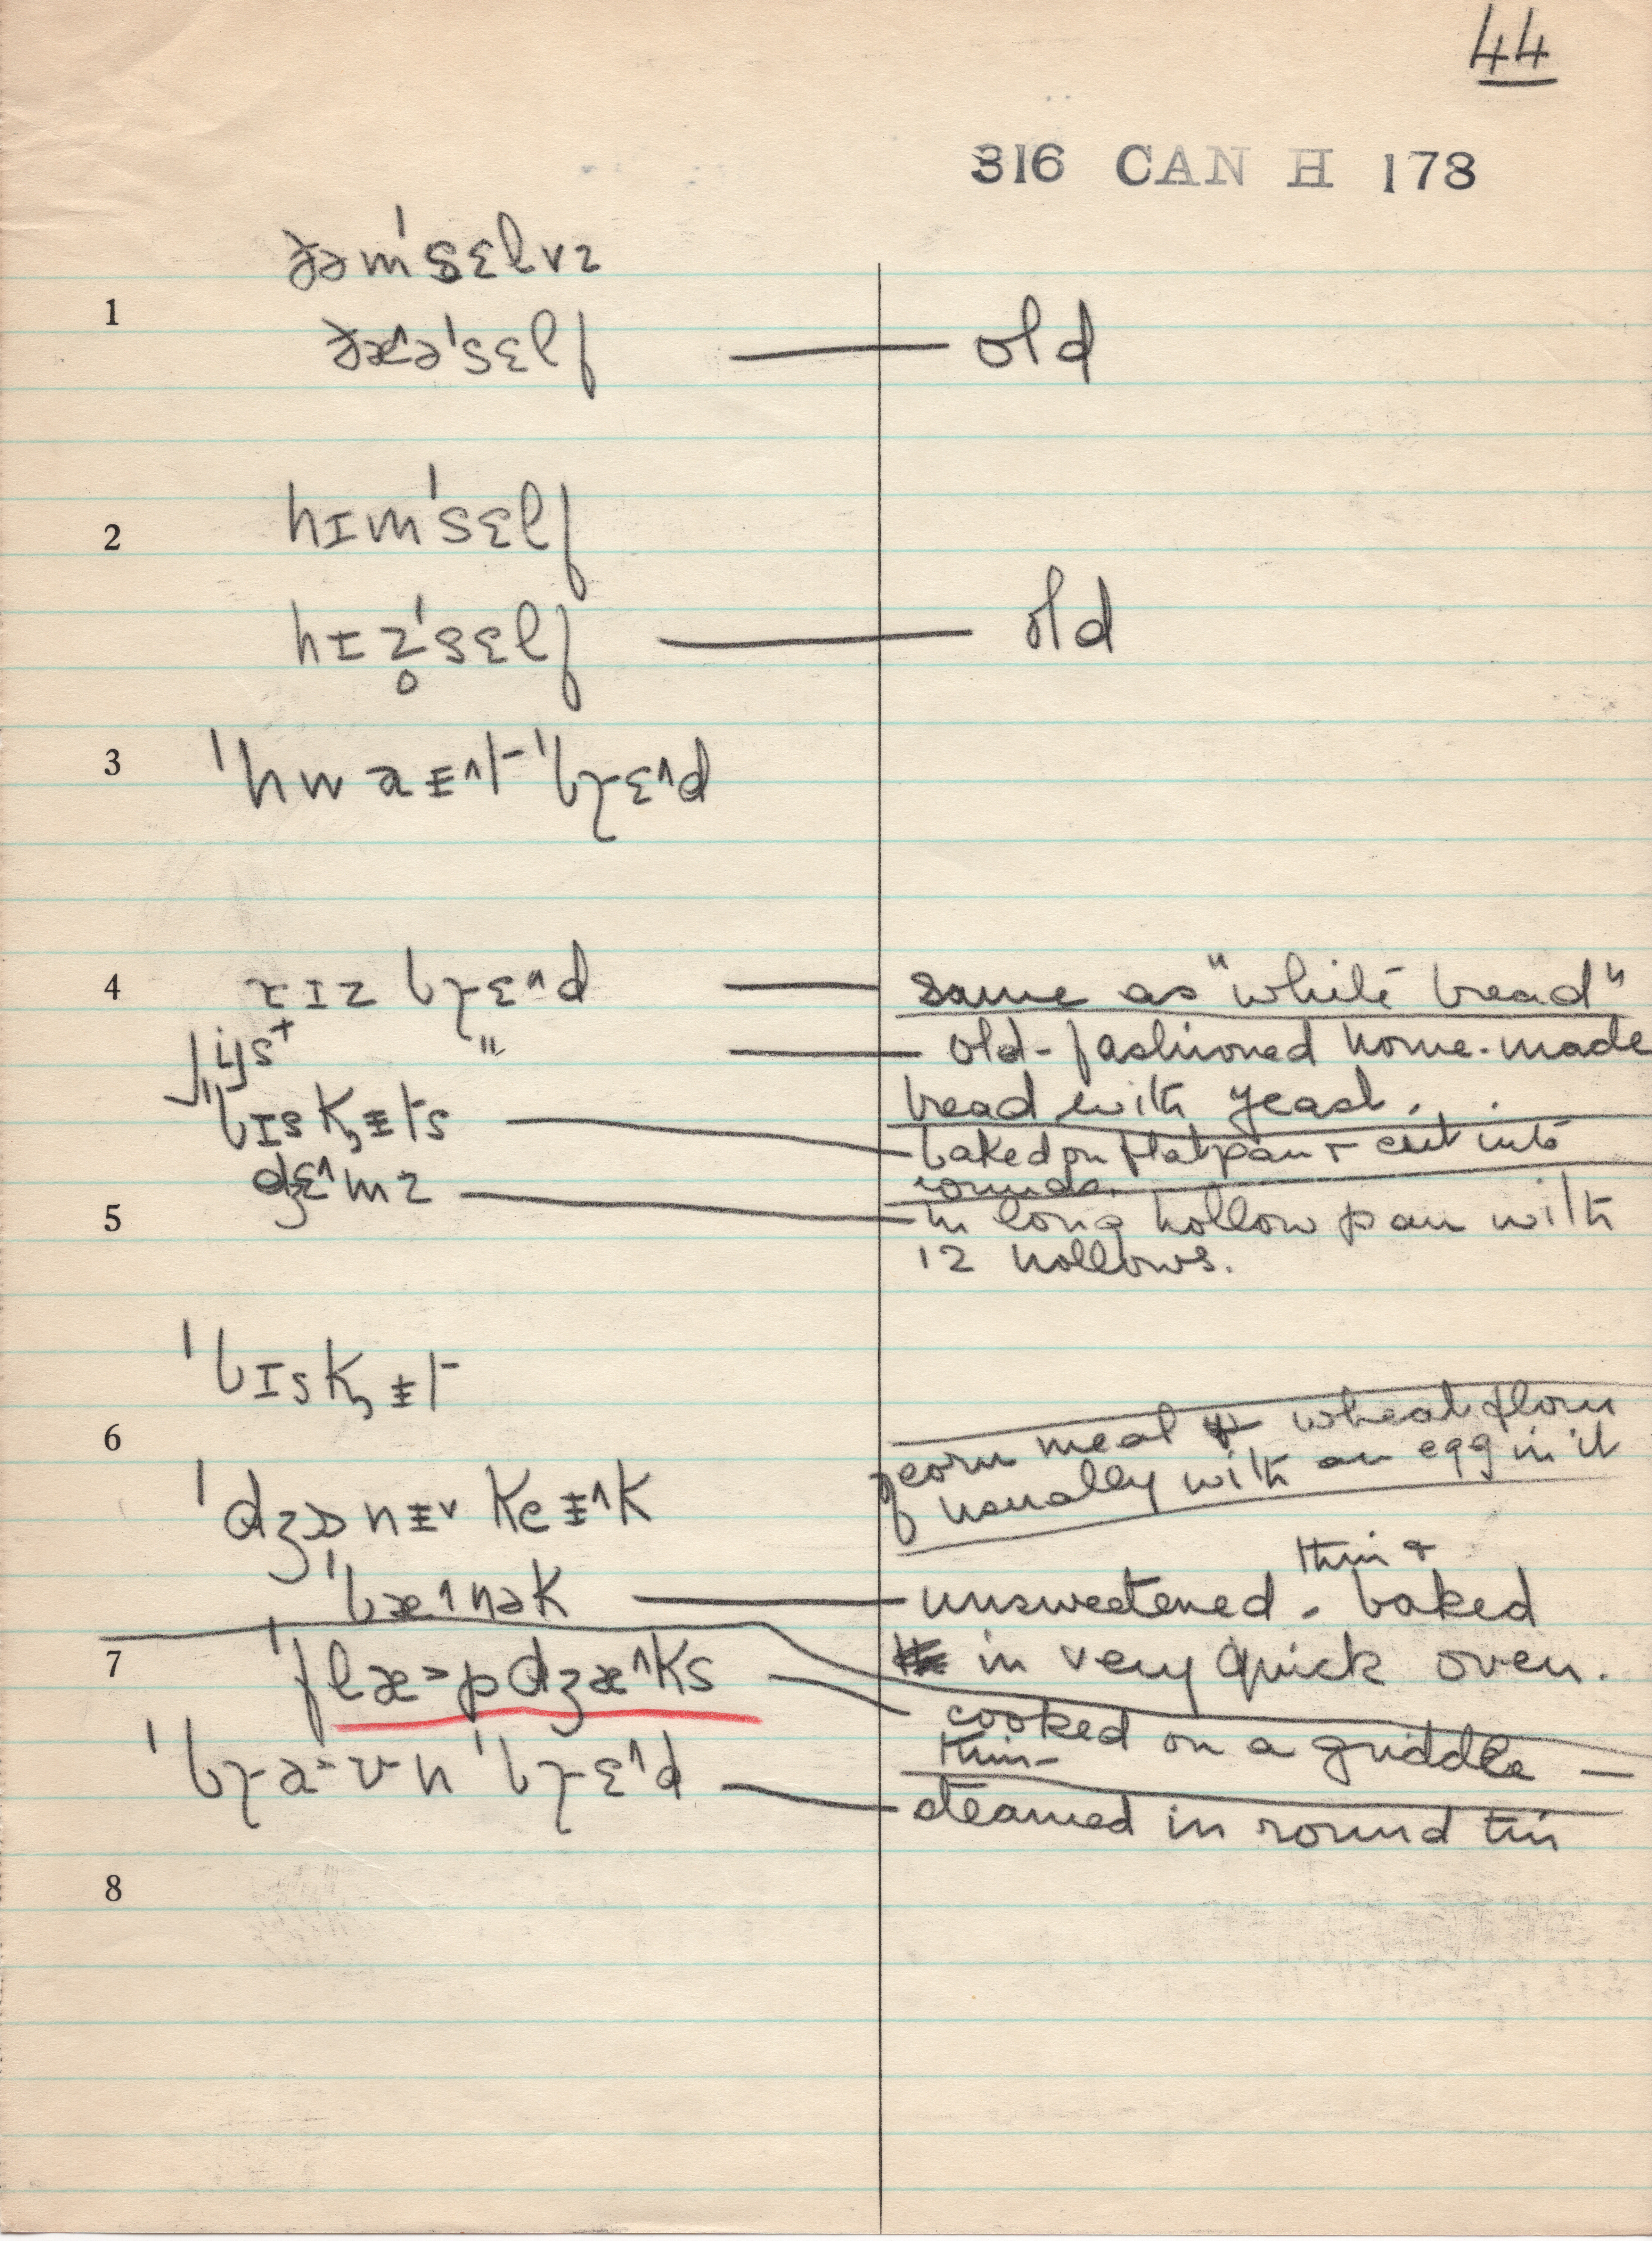 44
316 CAN H 178
ðəmˈsɛlvz
1
ðæ^əˈsɛlf — old
2
hɪmˈsɛlf
hɪz̥ˈsɛlf — old
3
ˈhwaɪ^t ˈbrɛ^d
4
rɪz brɛ^d — same as "white bread"
jis+ " — old-fashioned home-made
bread with yeast.
ˈbɪskɪts — baked on flat pan + cut into
rounds.
dʒɛ^mz
5
in long hollow pan with
12 hollows.
ˈbɪskɪt
6
corn meal + wheat flour
usually with an egg in it
ˈdʒɒnɪv keɪ^k
thin +
ˈbæ^nək — unsweetened. baked
7
in very quick oven.
ˈflæ>pdʒæ^ks
cooked on a griddle —
thin —
ˈbraʊn ˈbrɛ^d — steamed in round tin
8